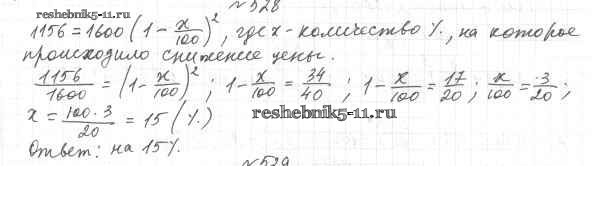 №528
reshebnik5-11.ru
1156 = 1600 (1 - x/100)², где x - количество %, на которое
происходило снижение цены.
1156/1600 = (1 - x/100)²; 1 - x/100 = 34/40; 1 - x/100 = 17/20; x/100 = 3/20;
x = 100·3/20 = 15 (%)
reshebnik5-11.ru
Ответ: на 15%.
№529